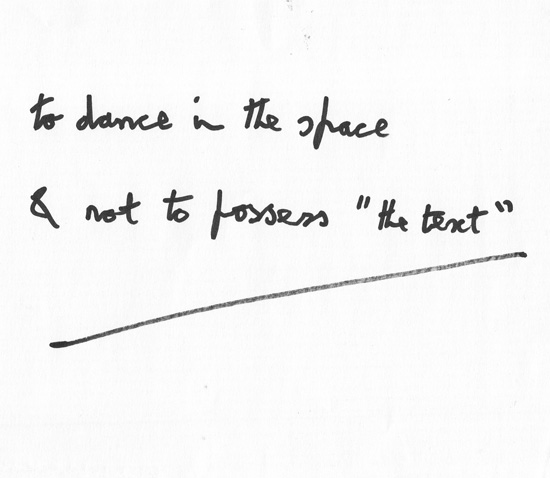 to dance in the space
& not to possess "the text"